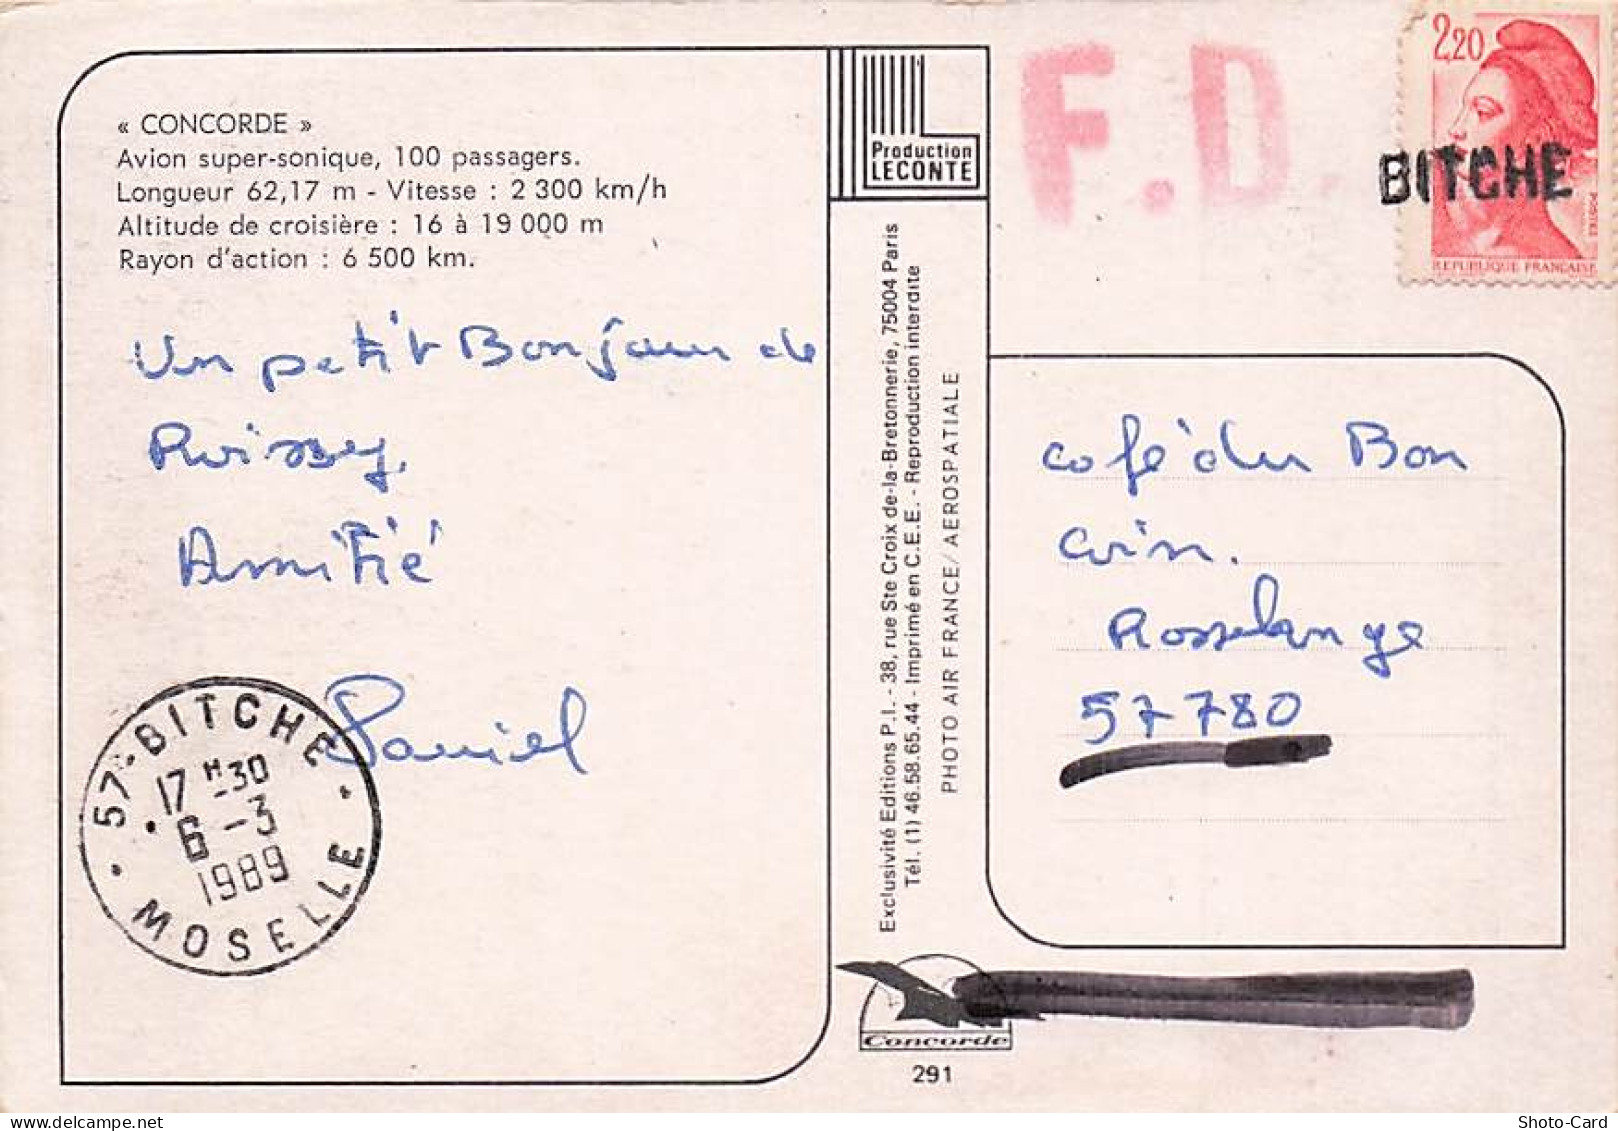 « CONCORDE »
Avion super-sonique, 100 passagers.
Longueur 62,17 m - Vitesse : 2 300 km/h
Altitude de croisière : 16 à 19 000 m
Rayon d'action : 6 500 km.
Un petit Bonjour de
Roissy.
Amitié
Daniel
57-BITCHE
17 H 30
6 - 3
1989
MOSELLE
Production
LECONTE
Exclusivité Editions P.I. - 38, rue Ste Croix de-la-Bretonnerie, 75004 Paris
Tél. (1) 46.58.65.44 - Imprimé en C.E.E. - Reproduction interdite
PHOTO AIR FRANCE/AEROSPATIALE
Concorde
291
F.D.
2,20
BITCHE
REPUBLIQUE FRANÇAISE
café du Bon
Coin.
Rosselange
57780
Shoto-Card